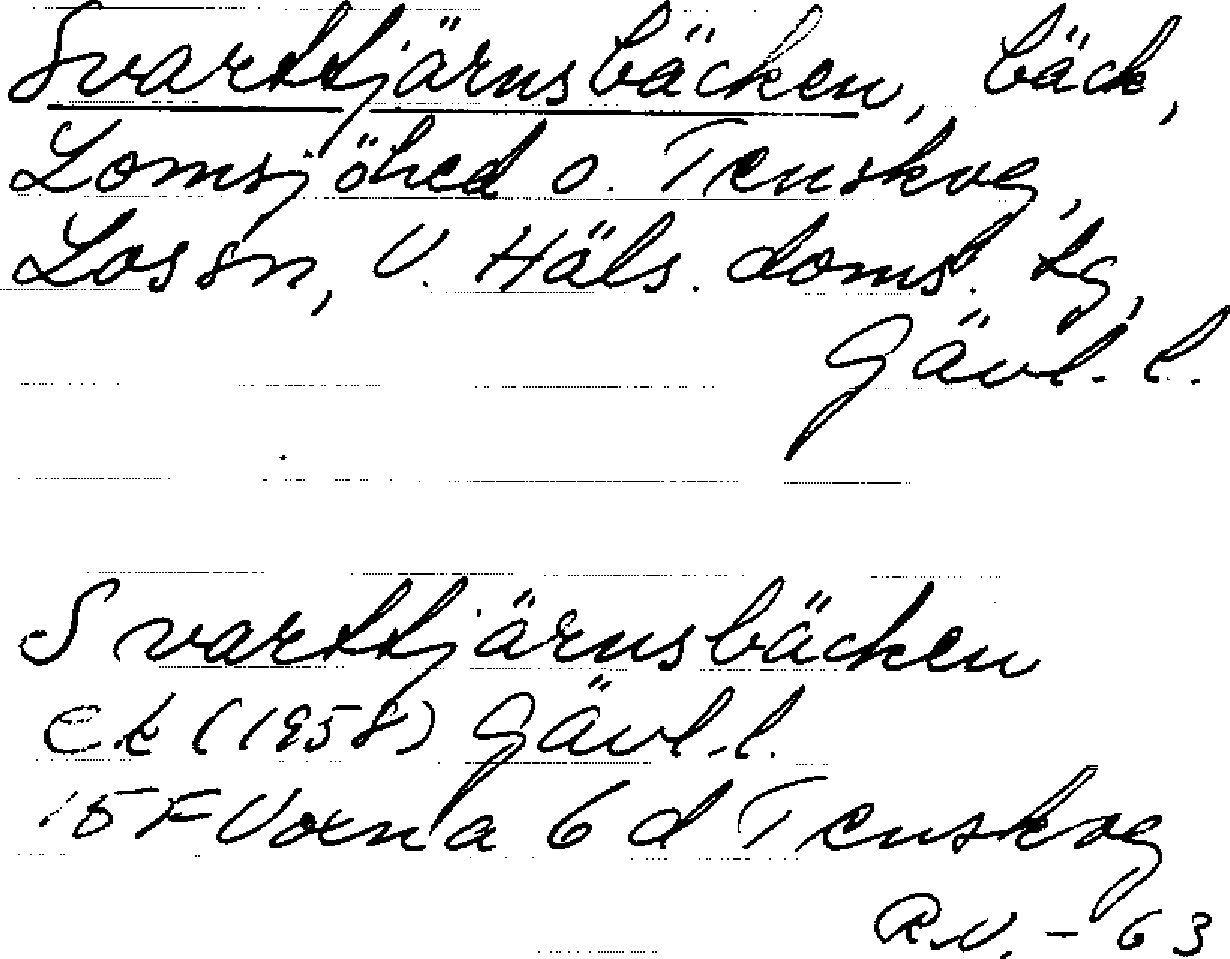 Svarttjärnsbäcken, bäck,
Lomsjöhed o. Tenskog,
Los sn, V. Häls. doms. tg,
Gävl. l.
Svarttjärnsbäcken
ek (1958) Gävl. l.
15F Voxna 6 d Tenskog
R.N. - 63